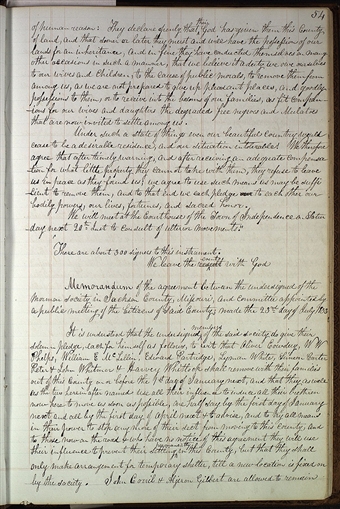 54
of human reason. They declare openly that their God has given them this County
of land, and that sooner or later they must and will have the possession of our
lands for an inheritance. And in fine they have conducted themselves on many
other occasions in such a manner, that we believe it a duty we owe ourselves
to our wives and children, to the cause of public morals, to remove them from
among us, as we are not prepared to give up our pleasant places, and goodly
possessions to them, or to receive into the bosom of our families, as fit compan-
ions for our wives and daughters the degraded free negroes and Mulattoes
that are now invited to settle among us.
Under such a state of things even our beautiful country would
cease to be a desirable residence, and our situation intolerable. We therefore
agree that after timely warning, and after receiving an adequate compensa-
tion for what little property they cannot take with them, they refuse to leave
us in peace as they found us, we agree to use such means as may be suffi-
cient to remove them, and to that end we each pledge to each other our
bodily powers, our lives, fortunes, and sacred honor.
We will meet at the Courthouse of the Town of Independence on Satur-
day next 20th Inst to consult of ulterior movements."
There are about 300 signers to this instrument.
We leave the event with God
Memorandum of the agreement between the undersigned of the
Mormon Society in Jackson County, Missouri, and committee appointed by
a public meeting of the citizens of said County, made the 23rd day of July 1833.
It is understood that the undersigned members of the said society do give their
solemn pledge each for himself as follows, to wit: That Oliver Cowdery, W W
Phelps, William E McLellin, Edward Partridge, Lyman Wight, Simeon Carter
Peter & John Whitmer & Harvey Whitlock shall remove with their families
out of this County on or before the 1st day of January next, and that they as well
as the two herein after named use all their influence to induce all their brethren
now here to move as soon as possible, one half say by the first day of January
next and all by the first day of April next & to advise, and to try all means
in their power to stop any more of their sect from moving to this County, and
to those now on the road & who have no notice of this agreement they will use
their influence to prevent their settling permanently in this County, but that they shall
only make arrangement for temporary shelter, till a new location is fixed on
by the society. John Corril & Algernon Gilbert are allowed to remain